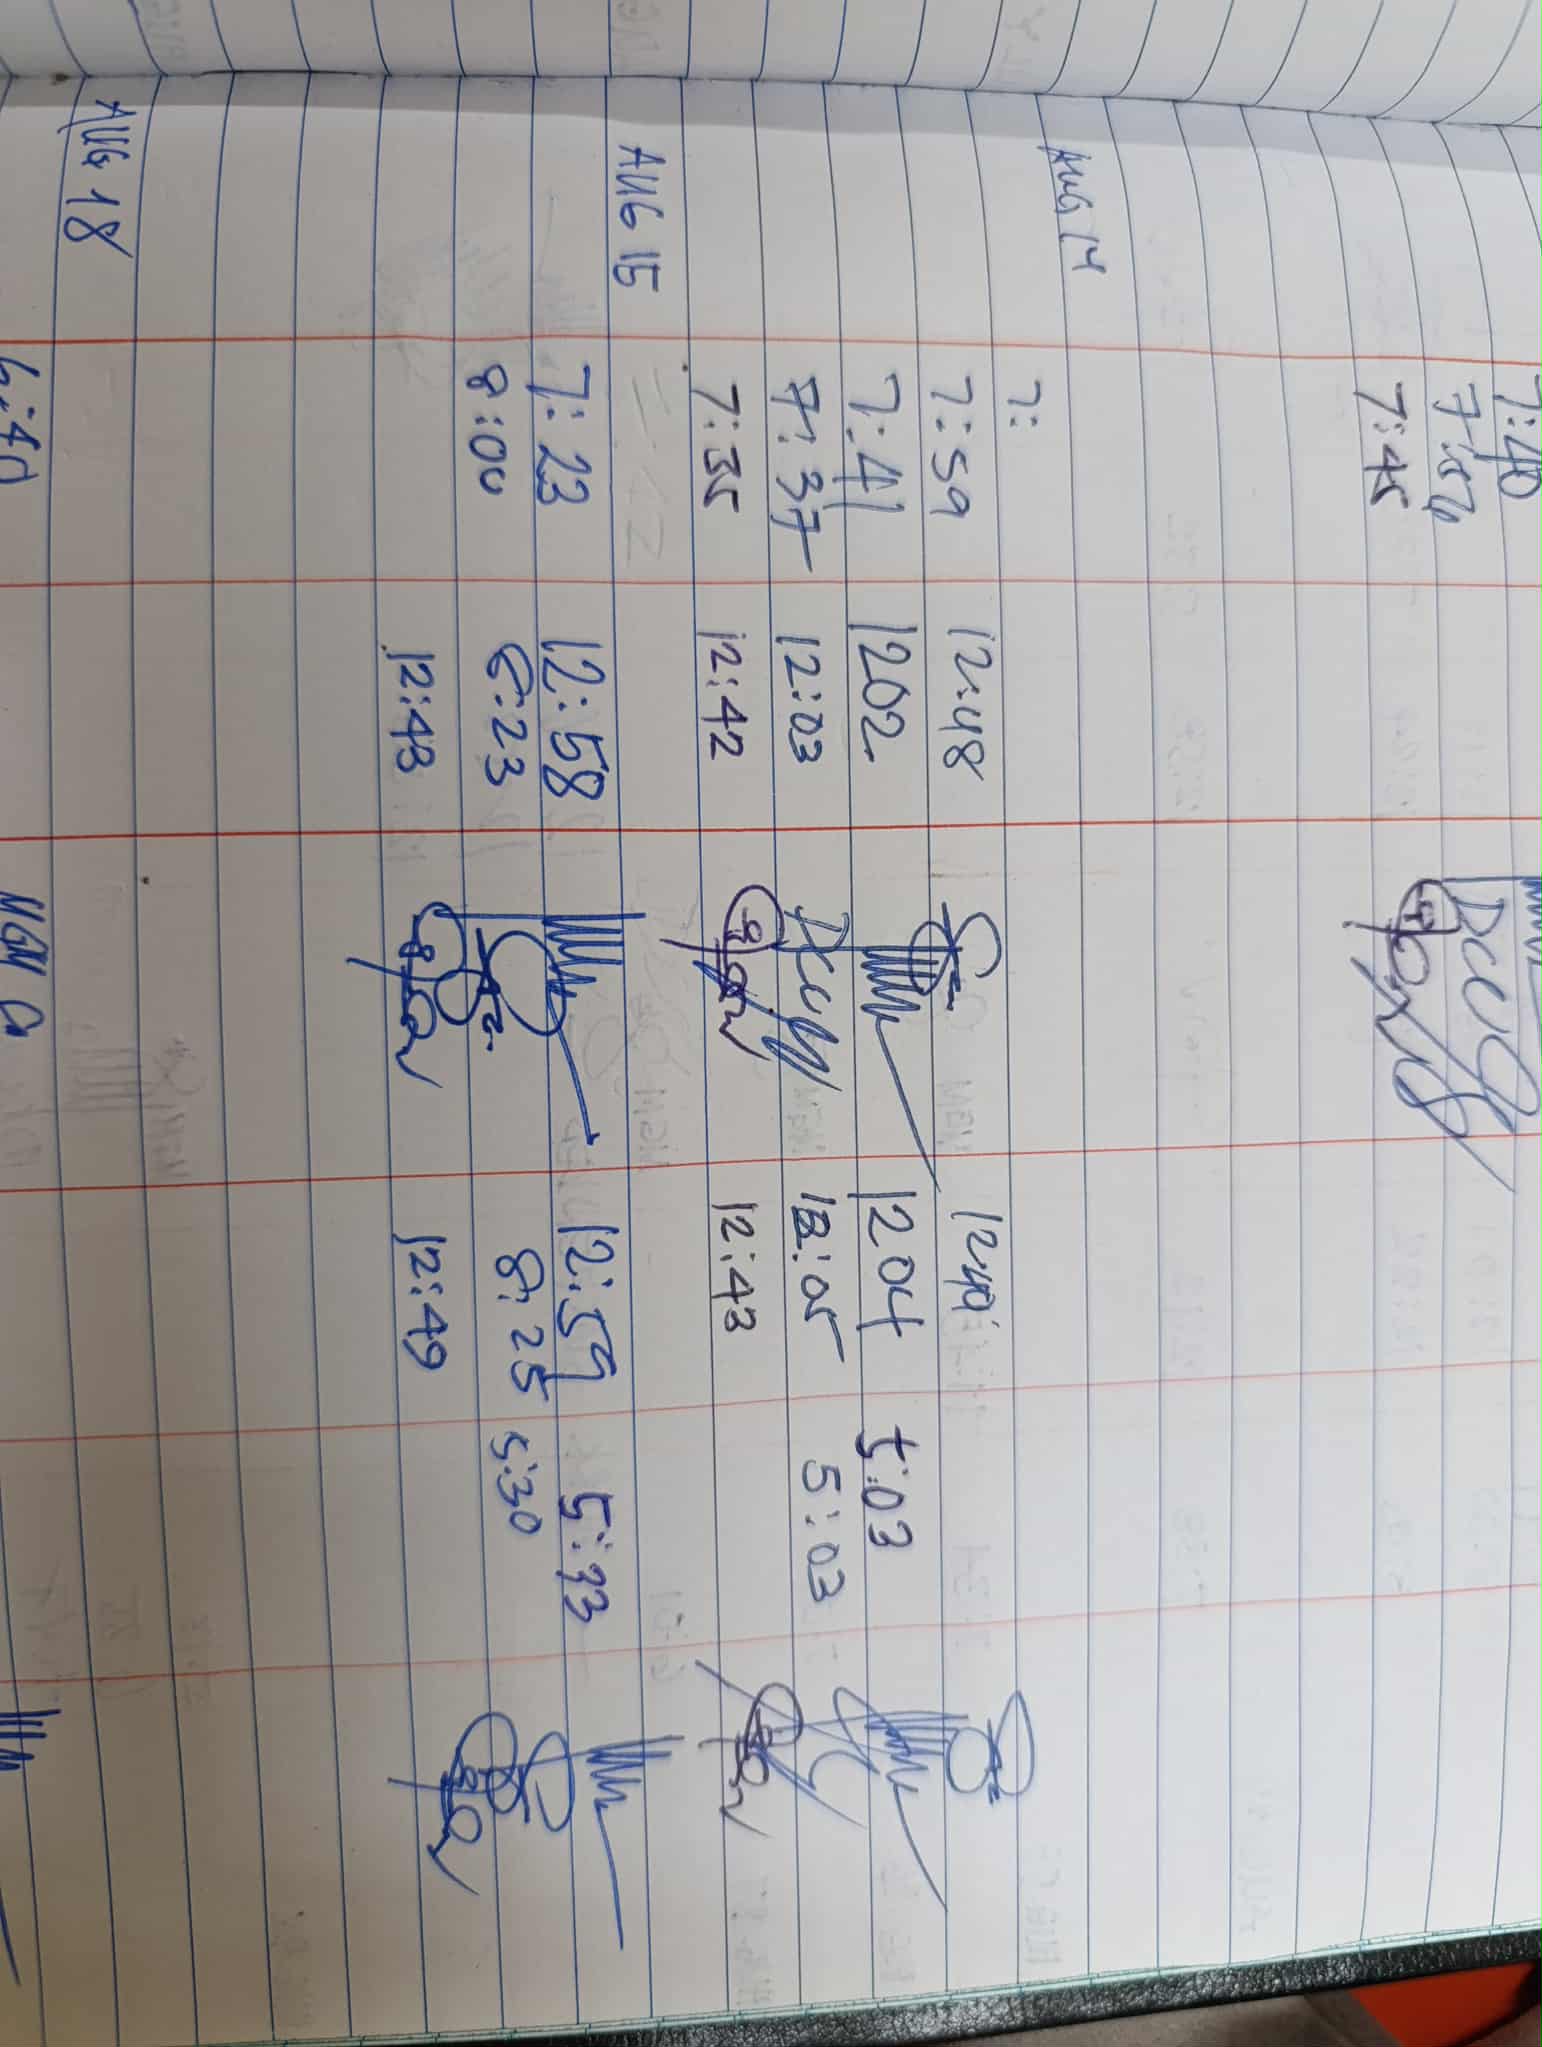 7:40
7:54
7:45
AUG 14 7:
7:59 12:48 1249
7:41 1202 1204 5:03
7:37 12:03 12:05 5:03
7:35 12:42 12:43
AUG 15
7:23 12:58 12:59 5:33
8:00 8:25 5:30
12:48 12:49
AUG 18
6:40